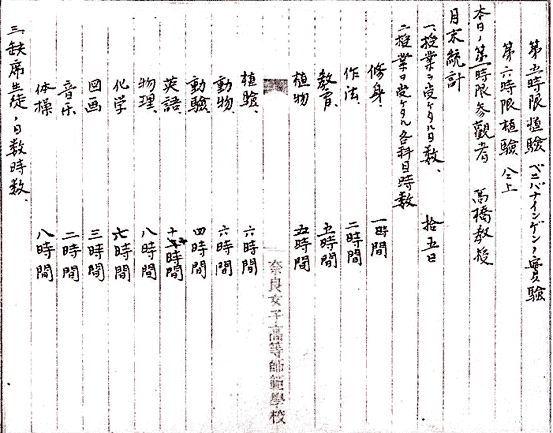 第五時限植驗 ベニバナインゲンノ實驗
第六時限植驗 仝上
本日ノ第一時限参觀者 髙橋教授
月末統計
一、授業ヲ受ケタル日数、 拾五日
二、授業ヲ受ケタル各科目時数
修身、 一時間
作法、 二時間
教育、 五時間
植物 五時間
奈良女子高等師範學校
植驗、 六時間
動物、 六時間
動驗、 四時間
英語、 十二時間
物理、 八時間
化学 六時間
図画 三時間
音乐 二時間
体操 八時間
三、缺席生徒ノ日数時数、